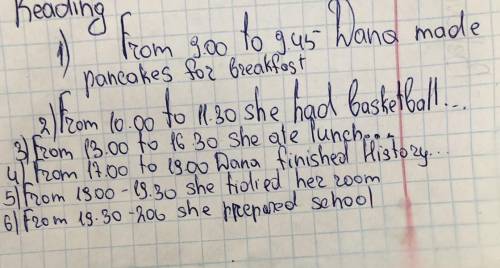 Reading
1) From 9.00 to 9.45 Dana made
pancakes for breakfast
2) From 10.00 to 11.30 she had basketball...
3) From 13.00 to 16.30 she ate lunch...
4) From 17.00 to 19.00 Dana finished History...
5) From 19.00-19.30 she tidied her room
6) From 19.30-200 she prepared school